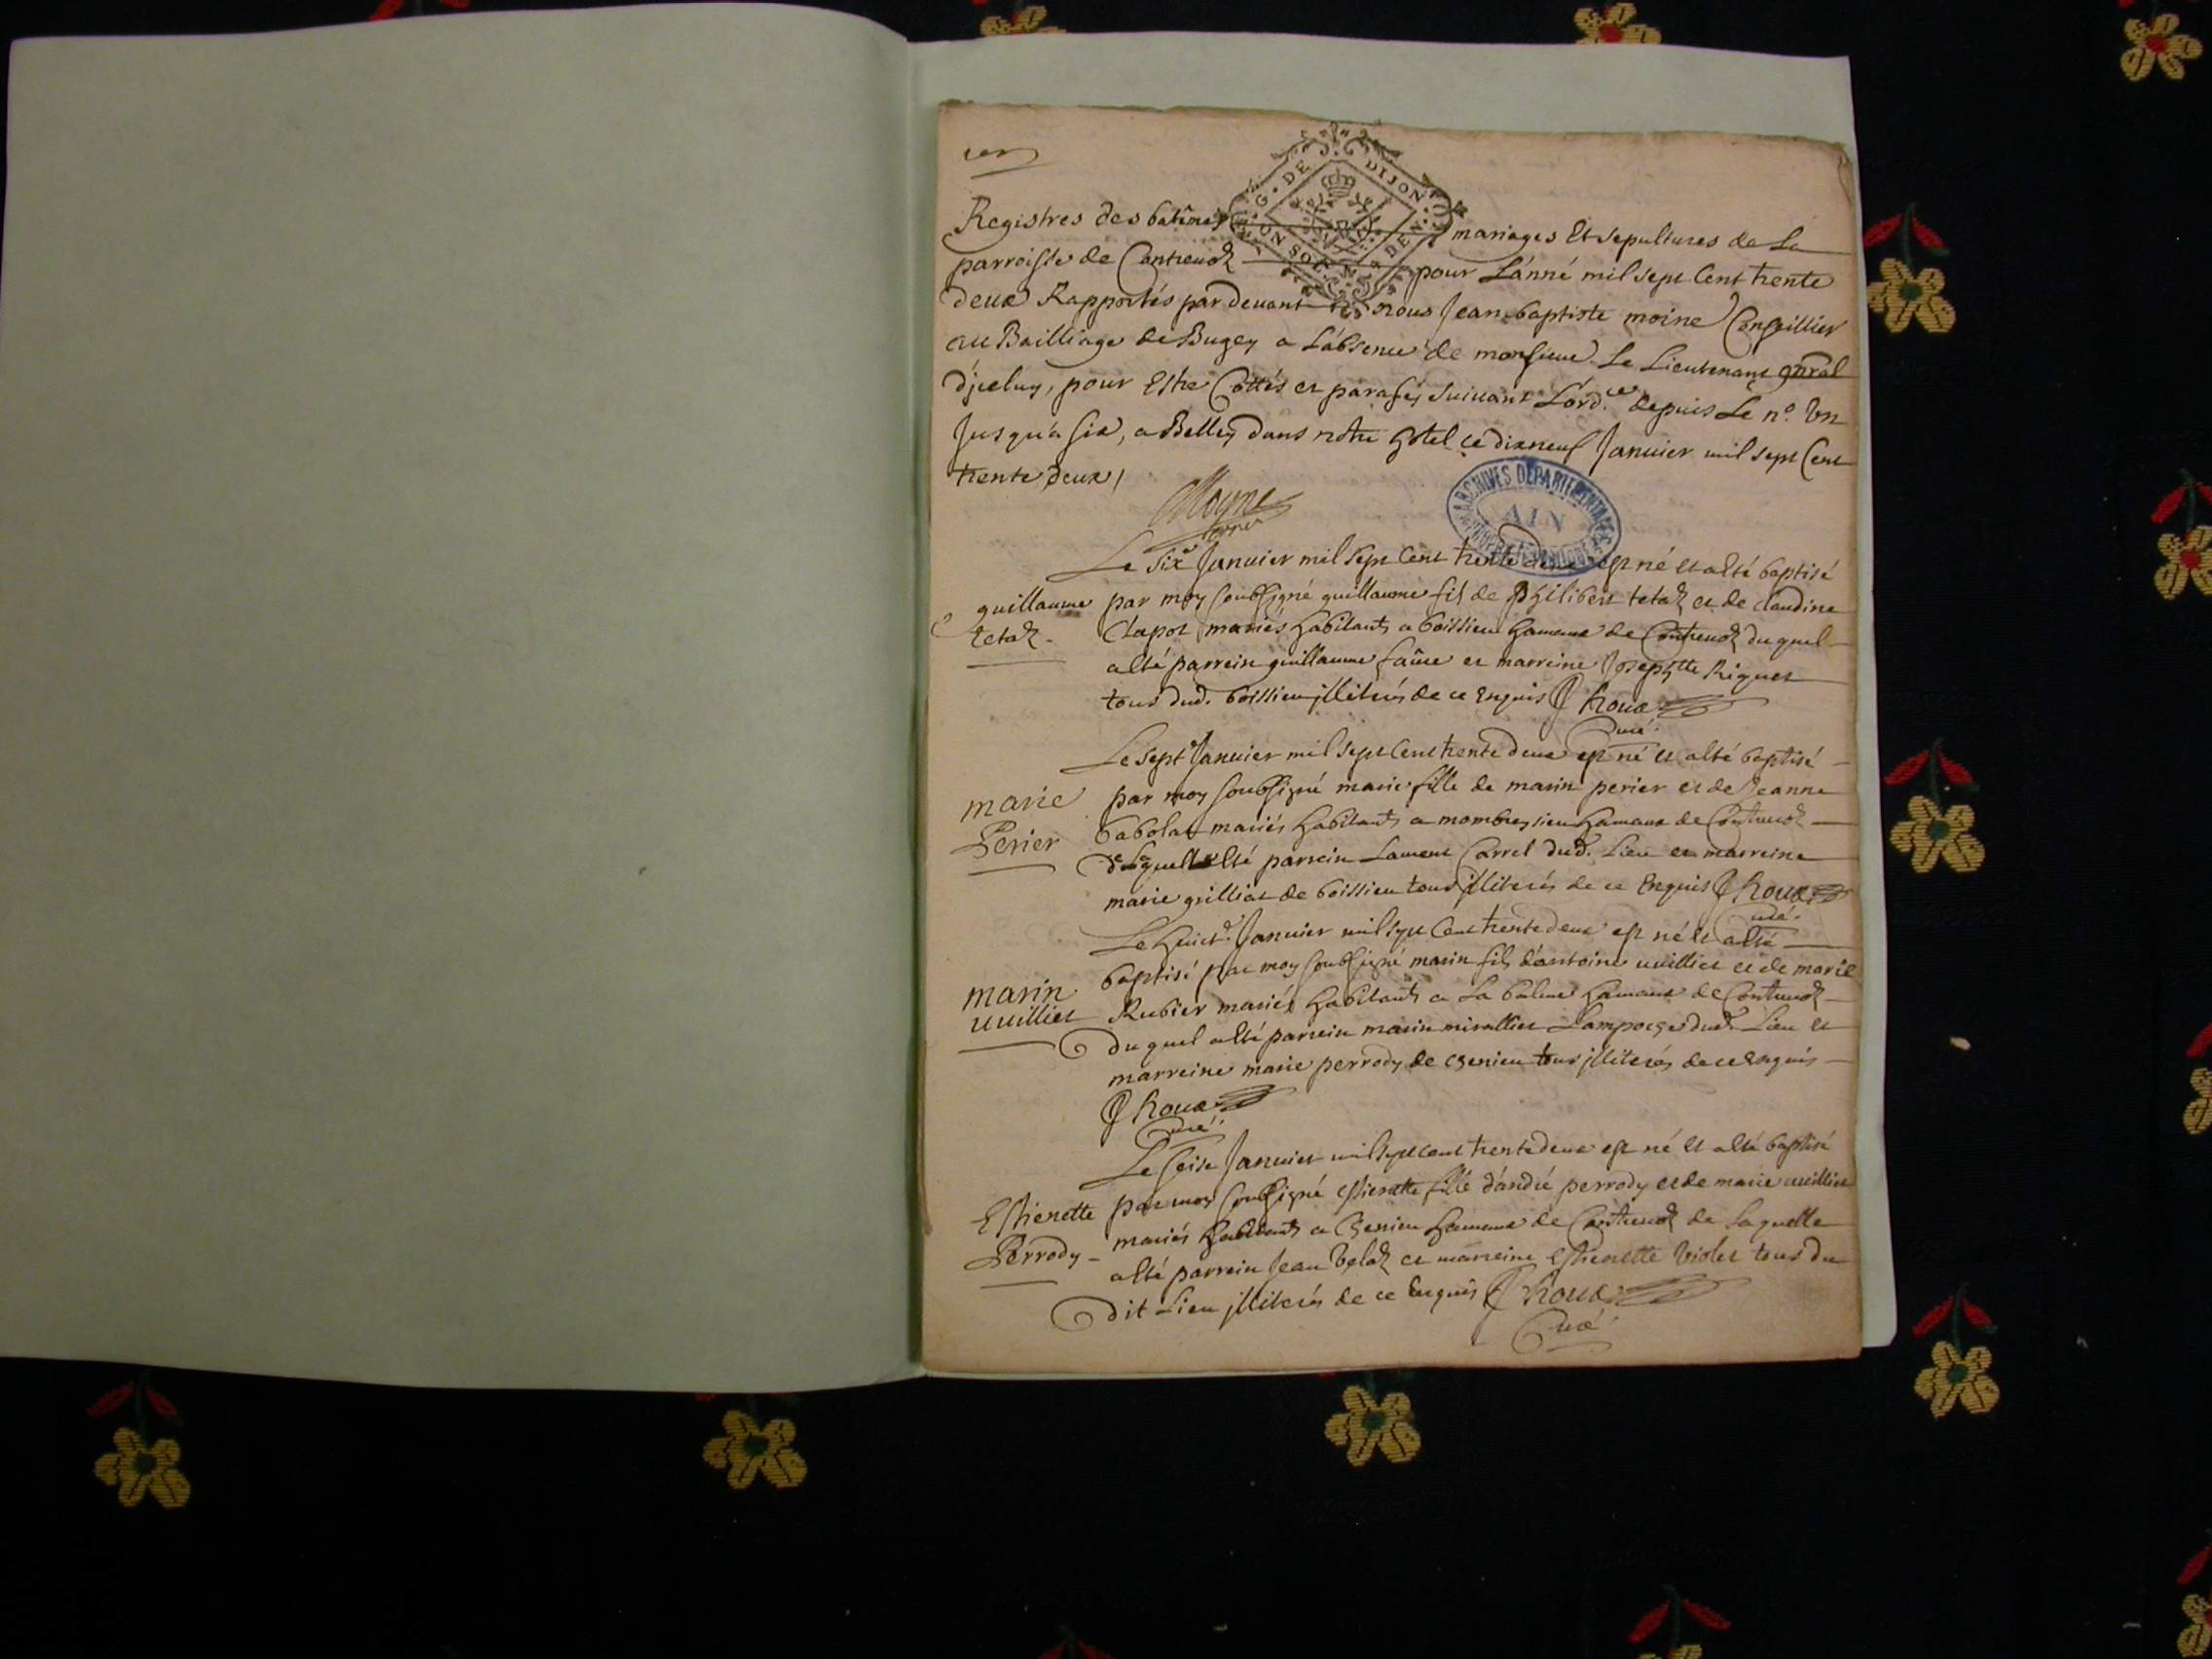 G. DE DIJON
Registres des batêmes mariages Et sepultures de La
parroisse de Contrevoz pour L'anné mil sept Cent trente
deux Rapportés par devant nous Jean-baptiste moine Conseillier
au Bailliage de Bugey a L'absence de monsieur Le Lieutenant gnral
d'jceluy, pour Estre Cottés et parafés suivant L'ord.ce depuis Le n.o Un
Jusqu'a six, a Belley dans notre hotel ce dixneuf Janvier mil sept Cent
trente deux /
Moyne
ARCHIVES DÉPARTEMENTALES
AIN
Le six Janvier mil sept Cent trente deux est né et a Esté baptisé
guillaume par moy soubsigné guillaume fils de philibert tetaz et de claudine
tetaz - Clapot mariés habitants a boissieu hameau de Contrevoz duquel
a Esté parrein guillaume faûre et marreine Josephtte Riguet
tous dud. boissieu jlliterés de ce Enquis J Roux
Curé
Le sept Janvier mil sept Cent trente deux est né et a Esté baptisé
marie par moy soubsigné marie fille de marin perier et de Jeanne
Perier babolat mariés habitants a mombreysieu hameau de Contrevoz
de Laquelle a Esté parrein Laurent Carrel dud. Lieu et marreine
marie grilliat de boissieu tous jlliterés de ce Enquis J Roux
Curé.
Le huict Janvier mil sept Cent trente deux est né et a Esté
baptisé par moy soubsigné marin fils d'antoine uuilliet et de marie
marin Rubier mariés habitants a La balme hameau de Contrevoz
uuilliet duquel a Esté parrein marin mirallier dud. Lieu et
marreine marie perrody de chenieu tous jlliterés de ce Enquis
J Roux
Curé.
Le seise Janvier mil sept cent trente deux est né et a Esté baptisé
Estienette par moy soubsigné Estienette fille d'andré perrody et de marie uuilliet
Perrody - mariés habitants a Chenieu hameau de Contrevoz de Laquelle
a Esté parrein Jean et marreine Estienette Violet tous du
dit Lieu jlliterés de ce Enquis J Roux
Curé